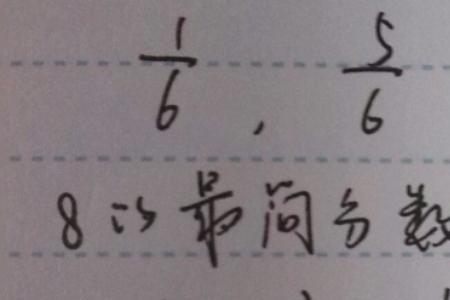 1/6 , 5/6
8的最简分数